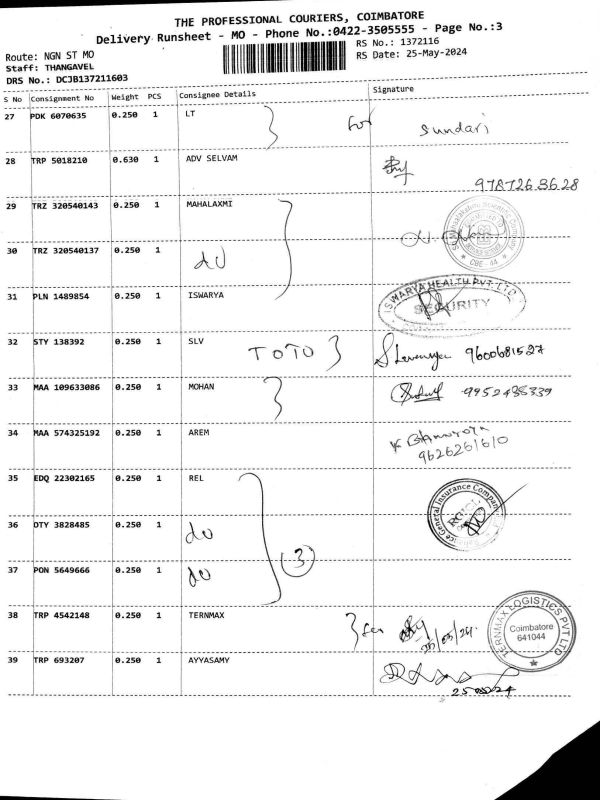 THE PROFESSIONAL COURIERS, COIMBATORE
Delivery Runsheet - MO - Phone No.:0422-3505555 - Page No.:3
Route: NGN ST MO
RS No.: 1372116
Staff: THANGAVEL
RS Date: 25-May-2024
DRS No.: DCJB137211603
S No Consignment No Weight PCS Consignee Details Signature
27 PDK 6070635 0.250 1 LT for Sundari
28 TRP 5018210 0.630 1 ADV SELVAM
9787263628
29 TRZ 320540143 0.250 1 MAHALAXMI
30 TRZ 320540137 0.250 1 du
CBE 44
31 PLN 1489854 0.250 1 ISWARYA
ISWARYA HEALTH PVT. LTD
SECURITY
32 STY 138392 0.250 1 SLV TOTO 9600681527
33 MAA 109633086 0.250 1 MOHAN 9952488339
34 MAA 574325192 0.250 1 AREM
9626261610
35 EDQ 22302165 0.250 1 REL
General Insurance Company
36 OTY 3828485 0.250 1 du
3
37 PON 5649666 0.250 1 du
38 TRP 4542148 0.250 1 TERNMAX for
TERNMAX LOGISTICS PVT LTD
Coimbatore
641044
39 TRP 693207 0.250 1 AYYASAMY